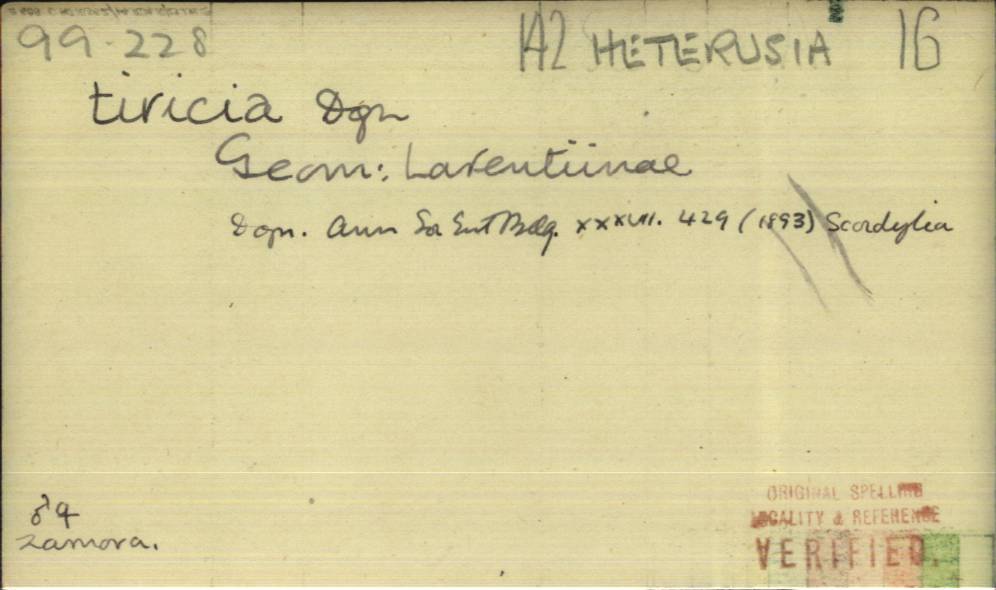 99.228 142 HETERUSIA 16
tiricia Dgn
Geom: Larentiinae
Dgn. Ann Soc Ent Belg. XXXVII. 429 (1893) Scordylia
♂ ♀
Zamora.
ORIGINAL SPELLING
LOCALITY & REFERENCE
VERIFIED.